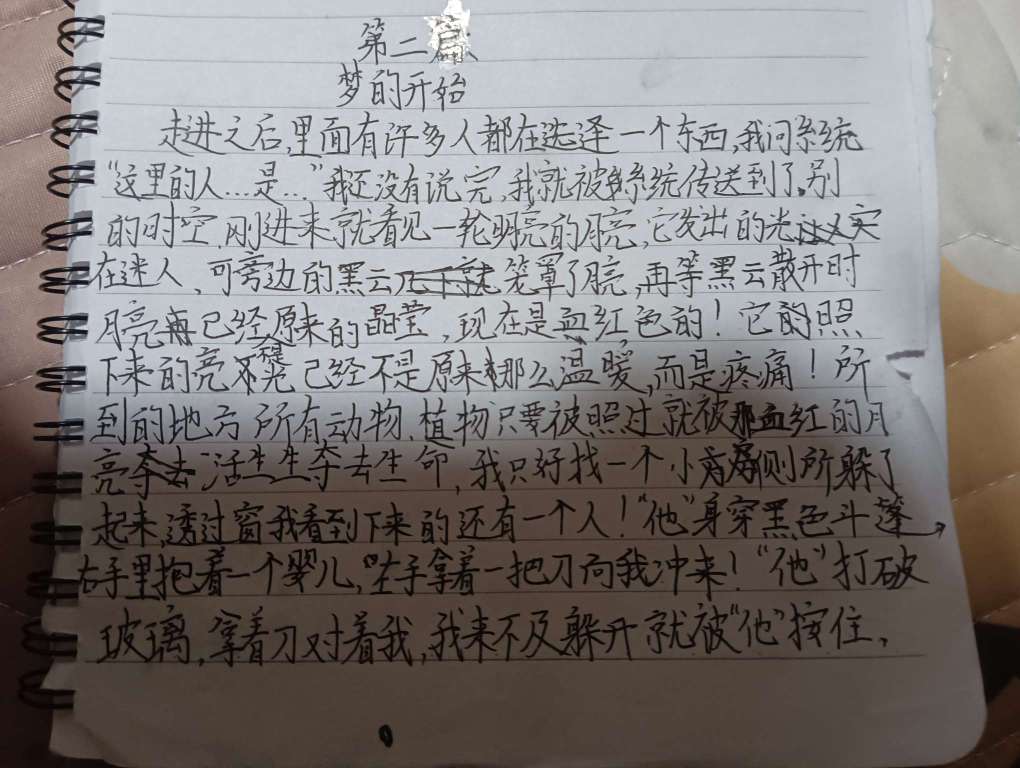 第二篇
梦的开始
走进之后,里面有许多人都在选泽一个东西,我问系统
“这里的人....是...”我还没有说完,我就被系统传送到了别
的时空,刚进来就看见一轮明亮的月亮,它发出的光实
在迷人,可旁边的黑云笼罩了月亮,再等黑云散开时
月亮已经原来的晶莹,现在是血红色的!它的照
下来的亮光已经不是原来那么温暖,而是疼痛!所
到的地方所有动物、植物只要被照过就被那血红的月
亮活生生夺去生命,我只好找一个小厕所躲了
起来,透过窗我看到下来的还有一个人!“他”身穿黑色斗篷,
右手里抱着一个婴儿,左手拿着一把刀向我冲来!“他”打破
玻璃,拿着刀对着我,我来不及躲开就被“他”按住,